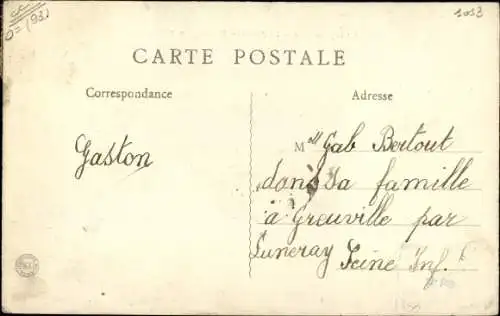 1013
CARTE POSTALE
Correspondance
Adresse
Gaston
Mll Gab Bertout
dans sa famille
à Greuville par
Luneray Seine Infre